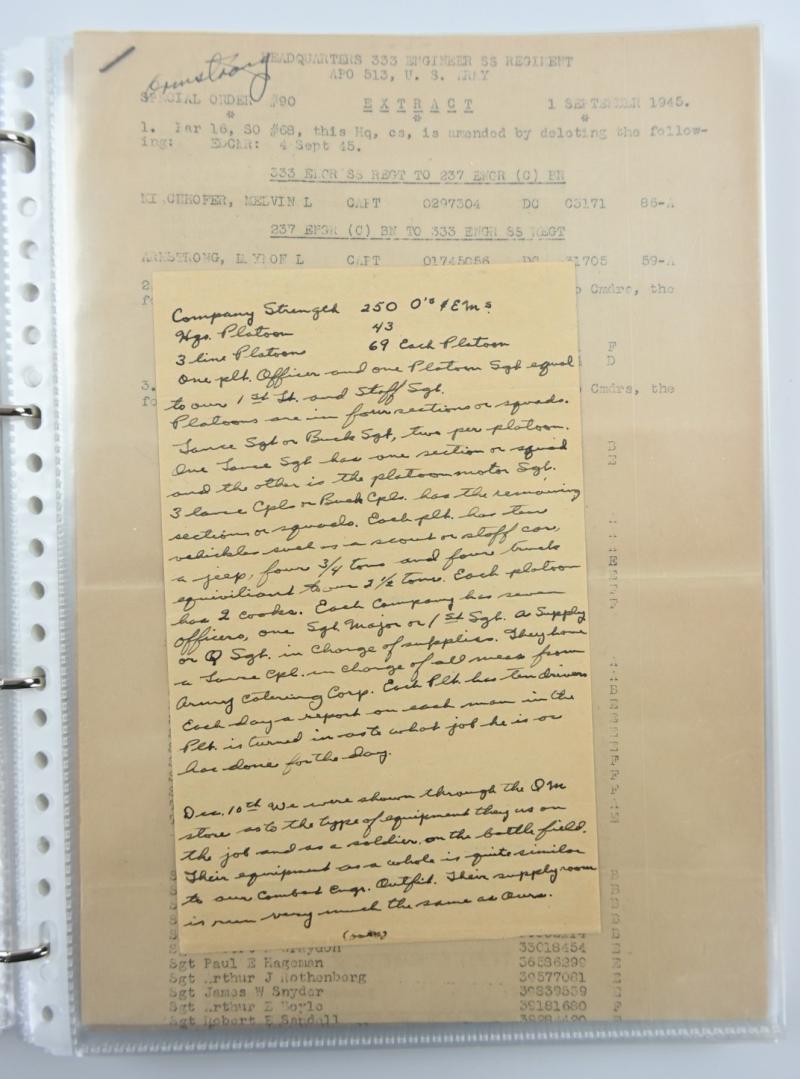 Armstrong
HEADQUARTERS 333 ENGINEER SS REGIMENT
APO 513, U. S. ARMY
SPECIAL ORDER #90 E X T R A C T 1 SEPTEMBER 1945.
* * *
1. Par 16, SO #68, this Hq, cs, is amended by deleting the follow-
ing: EDCMR: 4 Sept 45.
333 ENGR SS REGT TO 237 ENGR (C) BN
MELVIN L CAPT 0297304 DC C3171 86-A
237 ENGR (C) BN TO 333 ENGR SS REGT
ARMSTRONG, L CAPT 01745056 DC 31705 59-A
2 Cmdrs, the
F
D
3. Cmdrs, the
fo
B
E
Company Strength 250 O's & EMs.
Hqs. Platoon 43
3 line Platoons 69 Each Platoon
One plt. Officer and one Platoon Sgt equal
to our 1st Lt. and Staff Sgt.
Platoons are in four sections or squads.
Lance Sgt or Buck Sgt, two per platoon.
One Lance Sgt has one section or squad
and the other is the platoon motor Sgt.
3 lance Cpls or Buck Cpls. has the remaining
sections or squads. Each plt. has ten
vehickles such as a scout or staff car,
a jeep, four 3/4 tons and four trucks
equiviliant to our 2 1/2 tons. Each platoon
has 2 cooks. Each Company has seven
officers, one Sgt. Major or 1st Sgt. A Supply
or Q Sgt. in charge of supplies. They have
a Lance Cpl. in charge of all mess from
Army Catering Corp. Each Plt has ten drivers
Each day a report on each man in the
Plt. is turned in as to what job he is or
has done for the day.
Dec. 10th We were shown through the QM
store as to the type of equipment they us on
the job and as a soldier, on the battle field.
Their equipment as a whole is quite similar
to our Combat Engr. Outfit. Their supply room
is run very much the same as Ours.
(over)
33018454 E
Sgt Paul E Hageman 36586299 E
Sgt Arthur J Rothenberg 39577081 E
Sgt James W Snyder 39839539 E
Sgt Arthur E Boyle 39181680 F
Sgt Robert